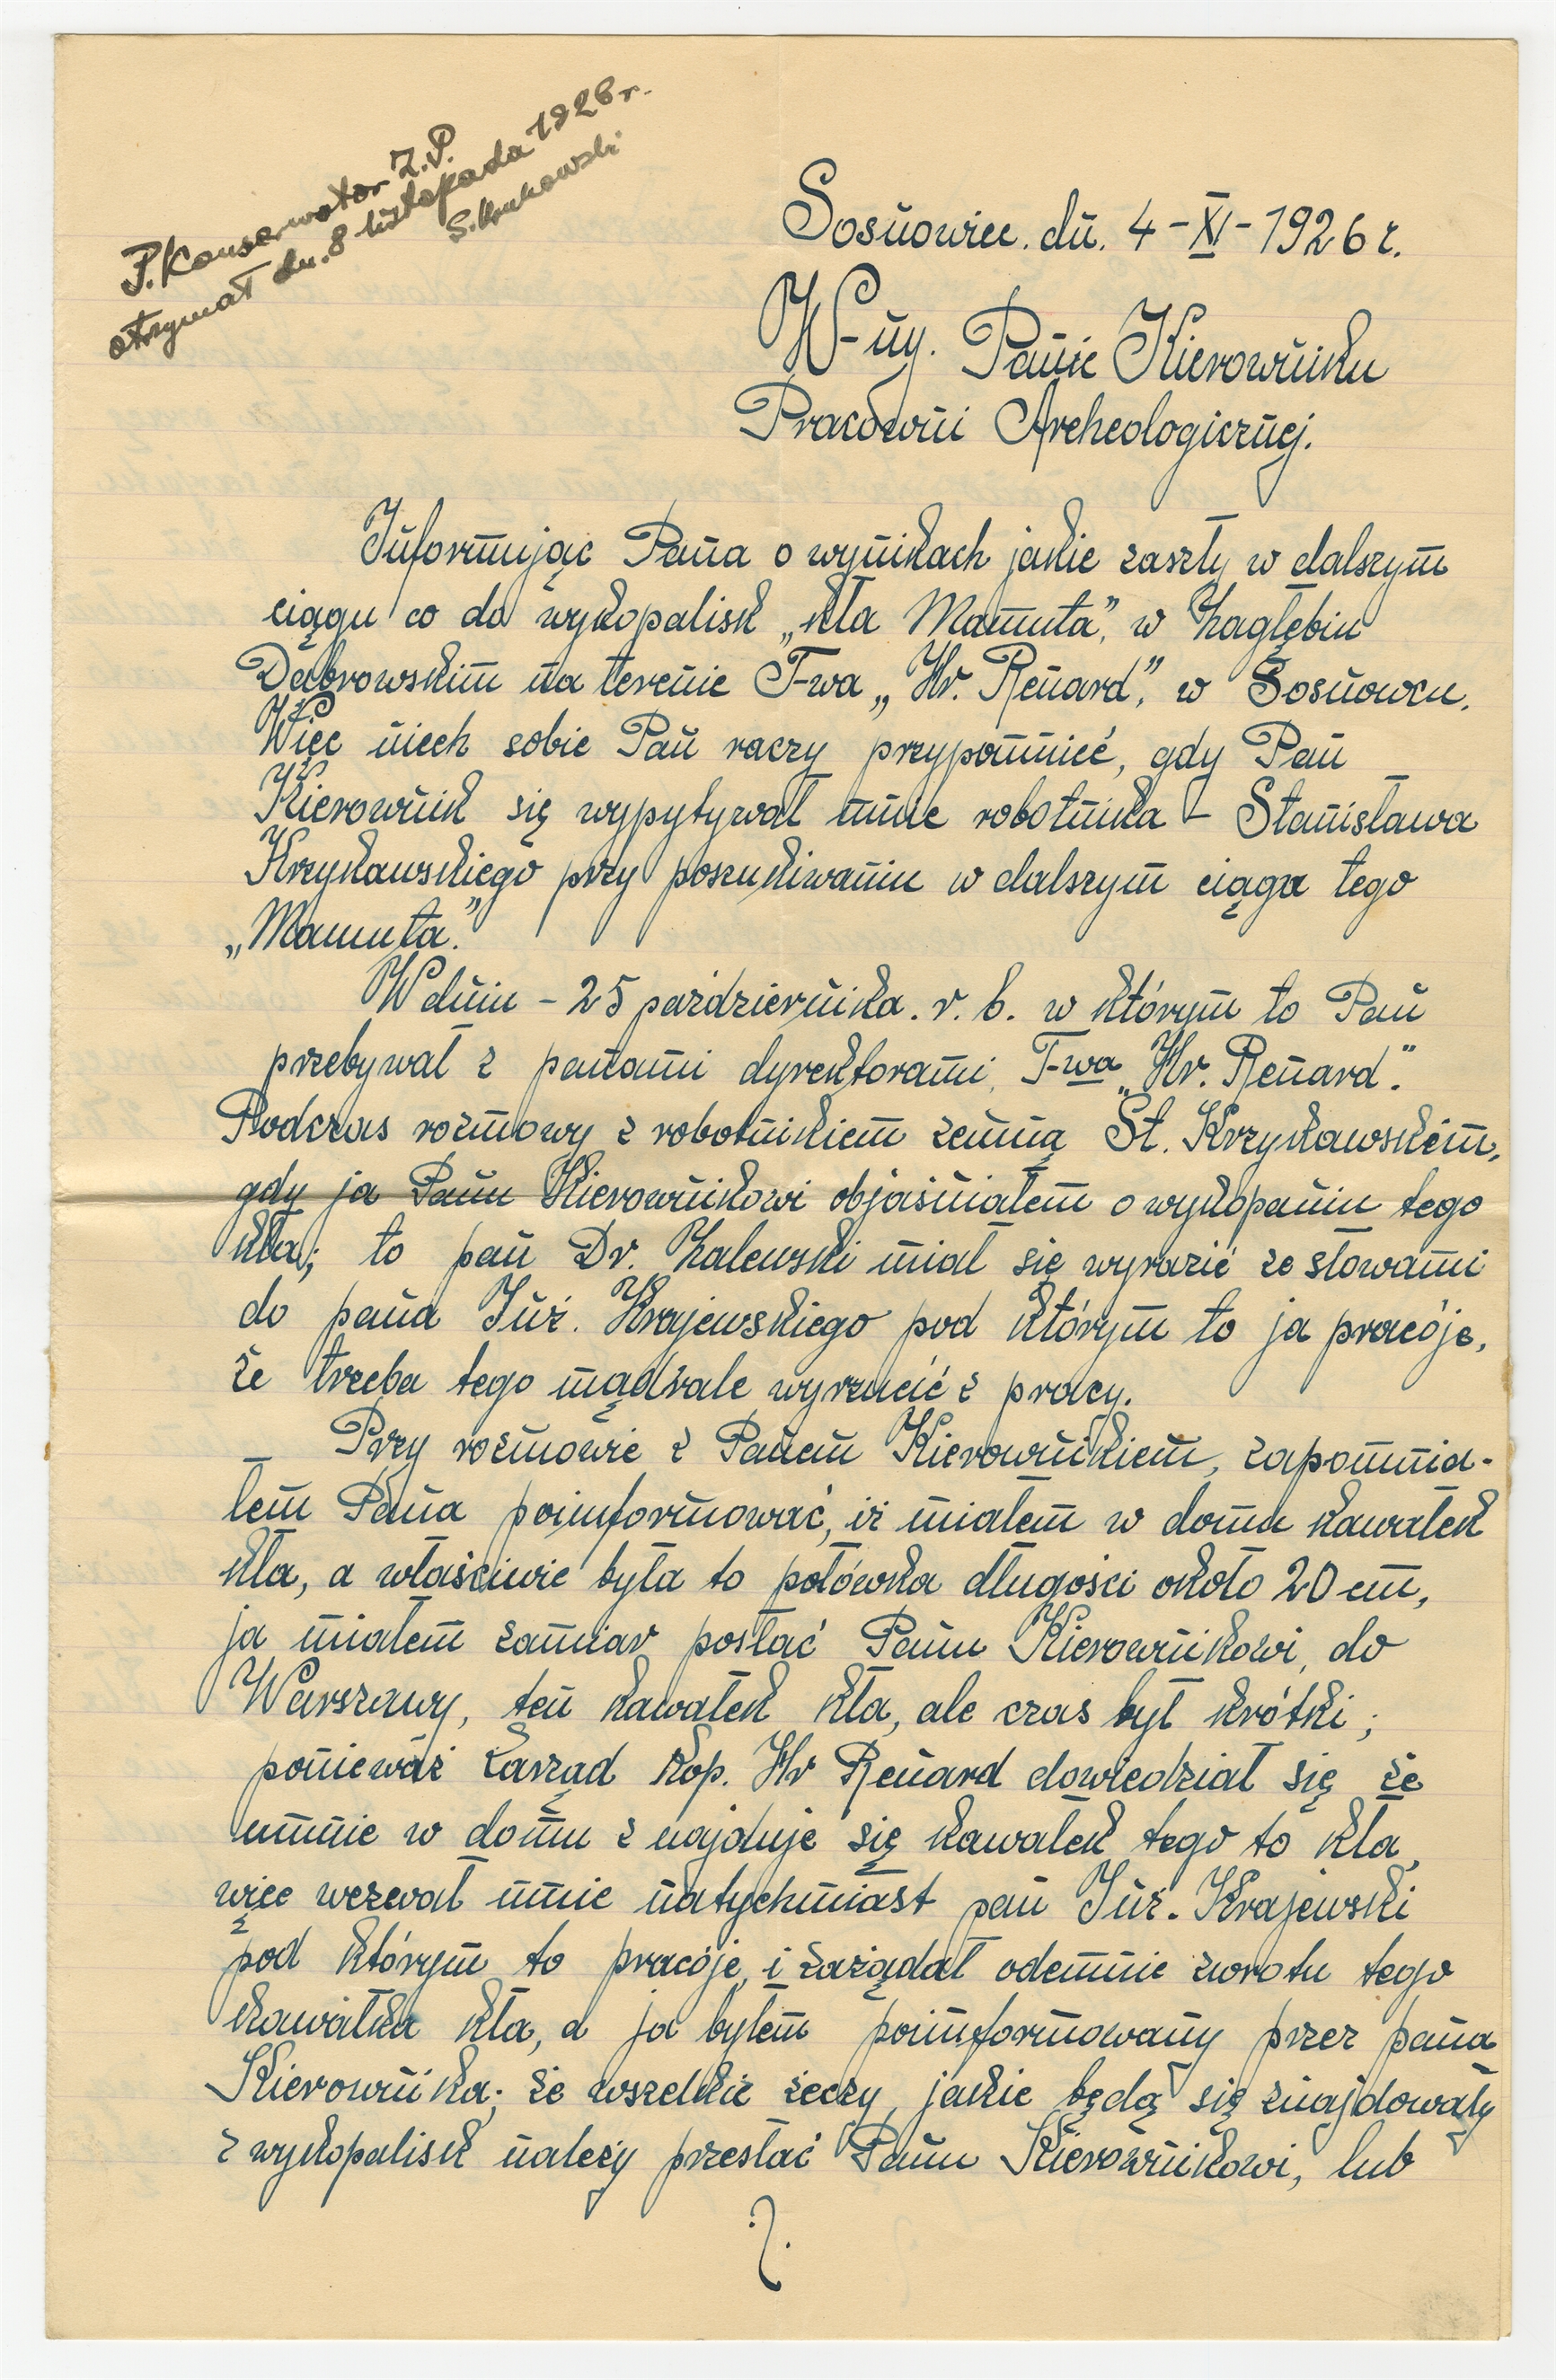 P. Konserwator Z.P.
otrzymał dn. 8 listopada 1926 r.
S. Krukowski
Sosnowiec. dn. 4-XI-1926 r.
W-ny. Panie Kierowniku
Pracówni Archeologicznej.
Informując Pana o wynikach jakie zaszły w dalszym
ciągu co do wykopalisk „kła Mamuta", w Zagłębiu
Dąbrowskim na terenie T-wa „Hr. Renard", w Sosnowcu.
Więc niech sobie Pan raczy przypomnieć, gdy Pan
Kierownik się wypytywał mnie robotnika - Stanisława
Krzykawskiego przy poszukiwaniu w dalszym ciągu tego
„Mamuta."
W dniu - 25 pażdziernika. r. b. w którym to Pan
przebywał z panami dyrektorami, T-wa „Hr. Renard."
Podczas rozmowy z robotnikiem zemną St. Krzykawskim,
gdy ja Panu Kierownikowi objaśniałem o wykopaniu tego
kła; to pan Dr. Zalewski miał się wyrazić ze słowami
do pana Inż. Krajewskiego pod którym to ja pracóję,
że trzeba tego mądrale wyrzucić z pracy.
Przy rozmowie z Panem Kierownikiem, zapomnia-
łem Pana poinformować, iż miałem w domu kawałek
kła, a właściwie była to połówka długości około 20 cm,
ja miałem zamiar posłać Panu Kierownikowi, do
Warszawy, ten kawałek kła, ale czas był krótki;
ponieważ Zarząd kop. Hr Renard dowiedział się że
umnie w domu znajduje się kawałek tego to kła,
więc wezwał mnie natychmiast pan Inż. Krajewski
pod którym to pracóje, i zażądał odemnie zwrotu tego
kawałka kła, a ja byłem poinformowany przez pana
Kierownika; że wszelkie żeczy, jakie będą się znajdowały
z wykopalisk należy przesłać Panu Kierownikowi, lub